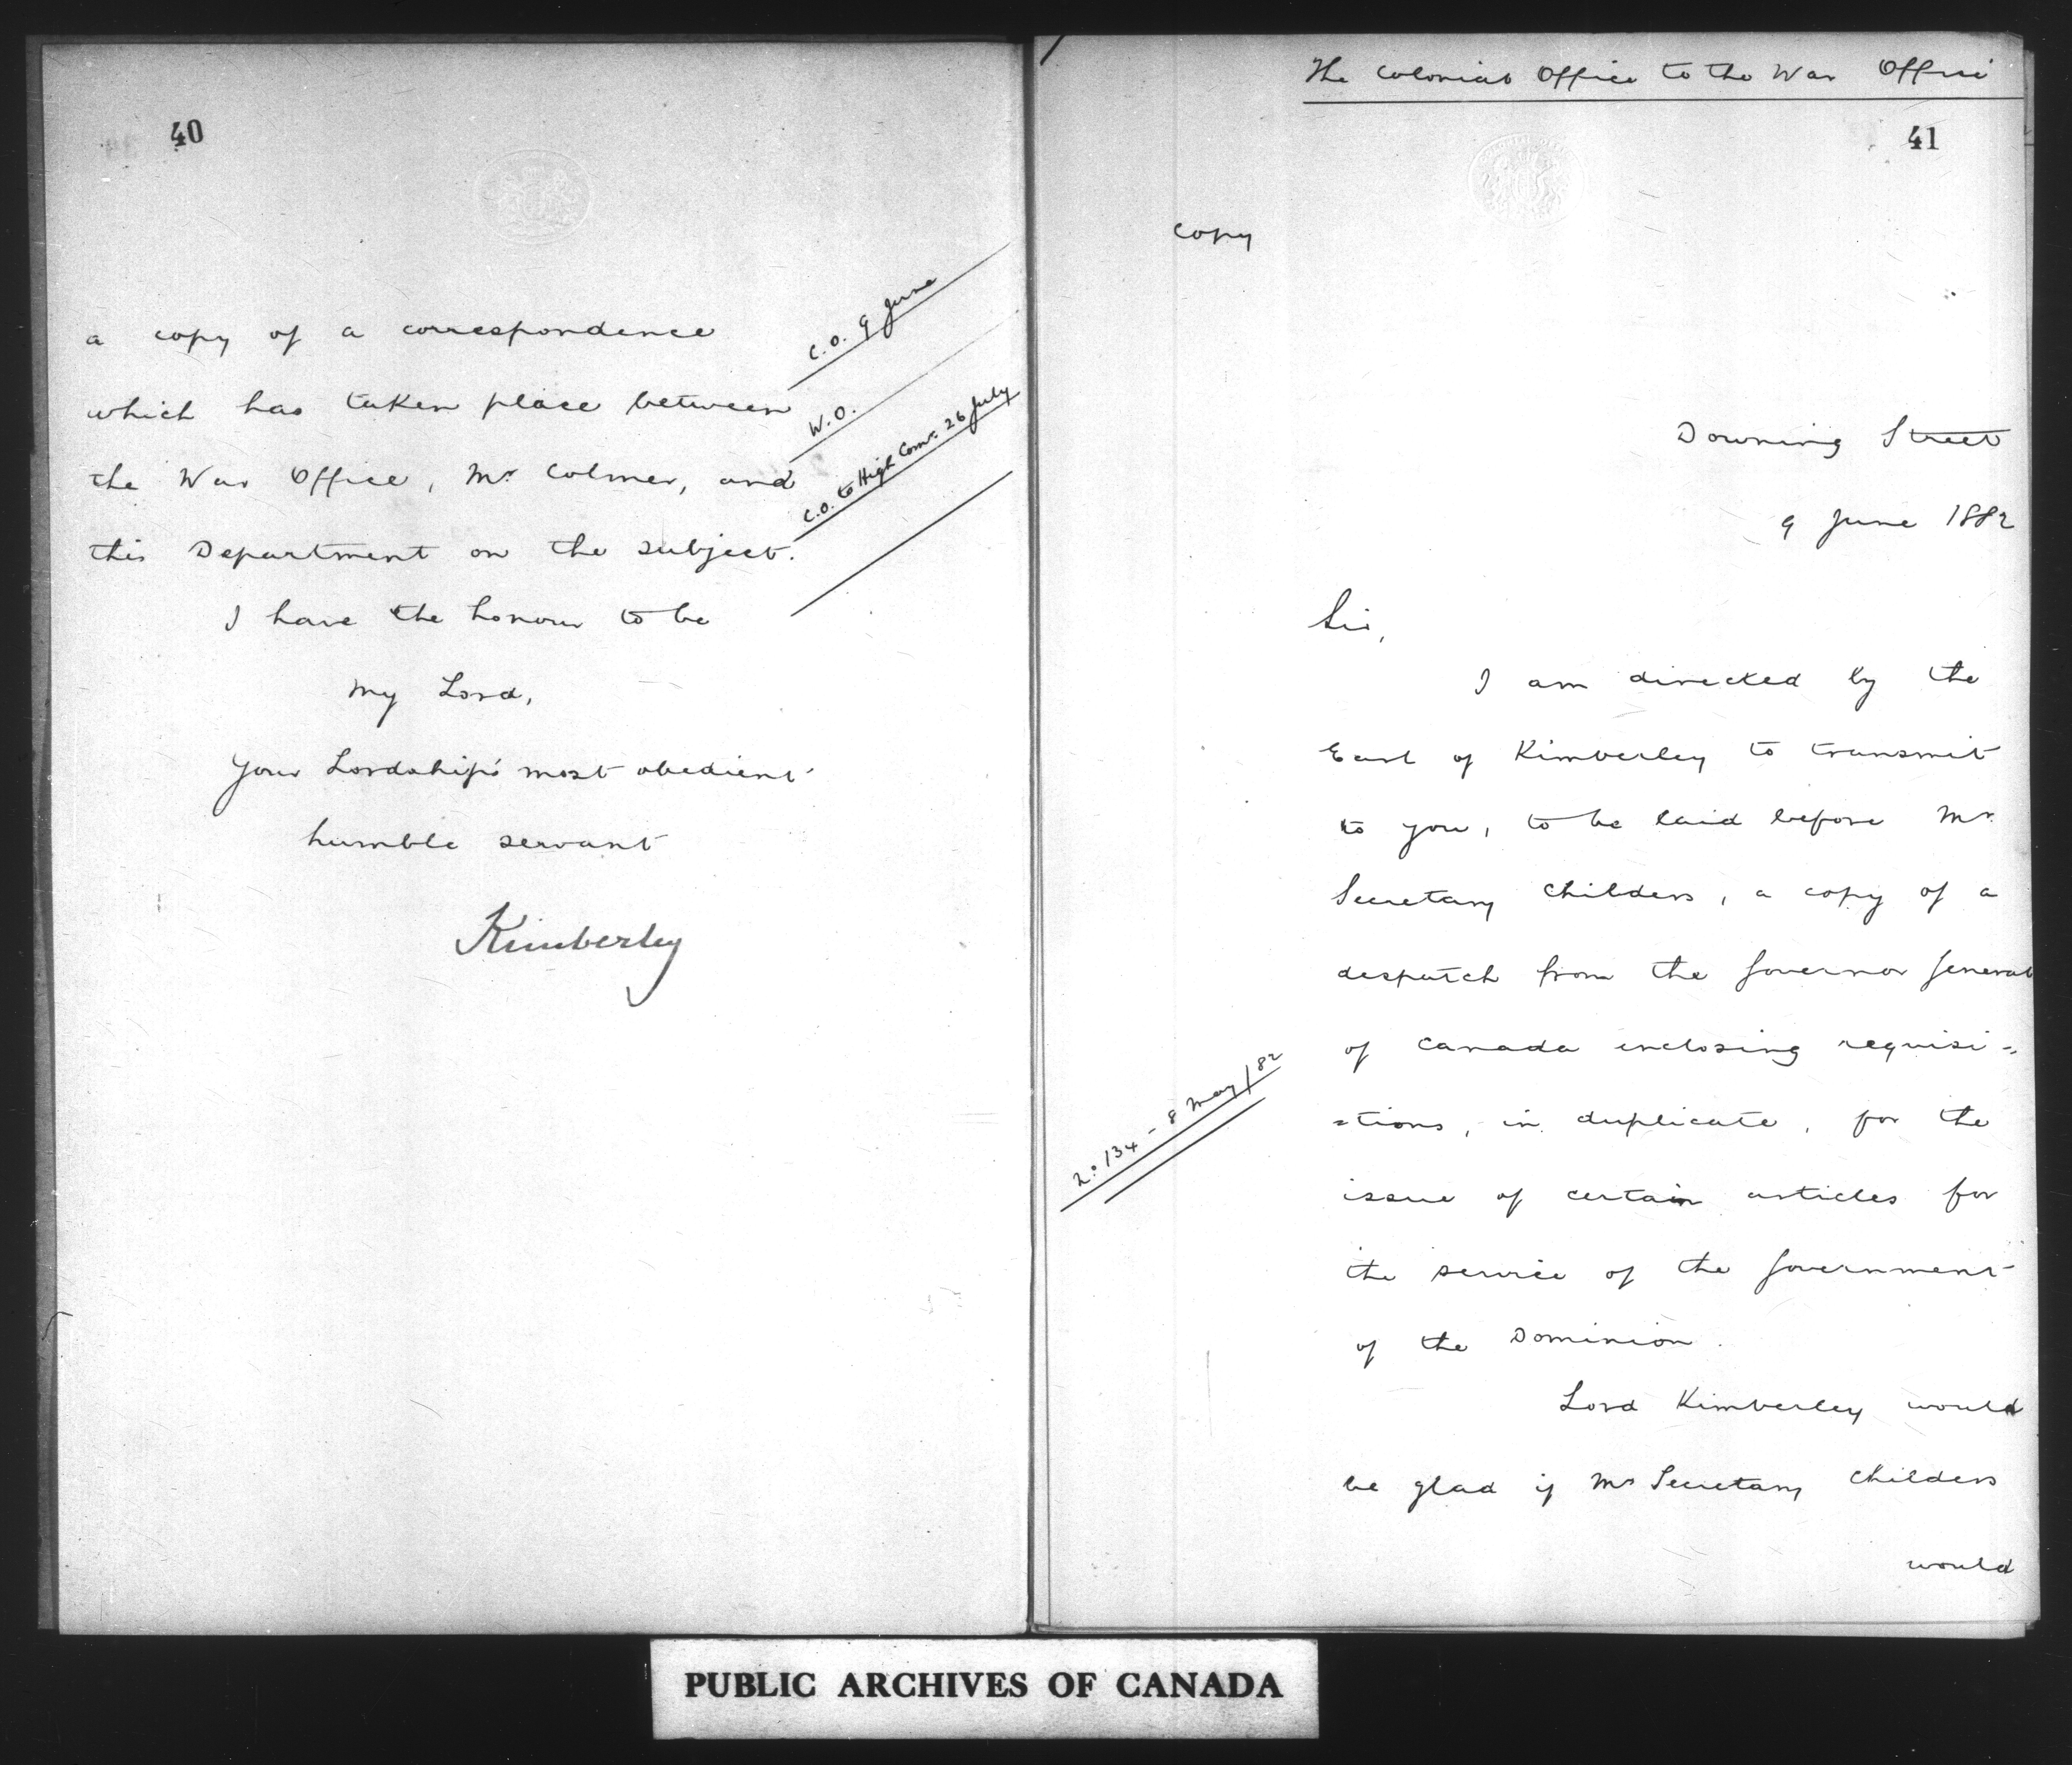 40
a copy of a correspondence
which has taken place between
the War Office, Mr Colmer, and
this Department on the subject.
C.O. 9 June
W.O.
C.O. to High Comr. 26 July
I have the honour to be
My Lord,
Your Lordship's most obedient
humble servant
Kimberley
The Colonial Office to the War Office
41
Copy
Downing Street
9 June 1882
Sir,
I am directed by the
Earl of Kimberley to transmit
to you, to be laid before Mr.
Secretary Childers, a copy of a
despatch from the Governor General
of Canada enclosing requisi=
=tions, in duplicate, for the
issue of certain articles for
the service of the Government
of the Dominion.
134 - 8 May/82
Lord Kimberley would
be glad if Mr Secretary Childers
would
PUBLIC ARCHIVES OF CANADA